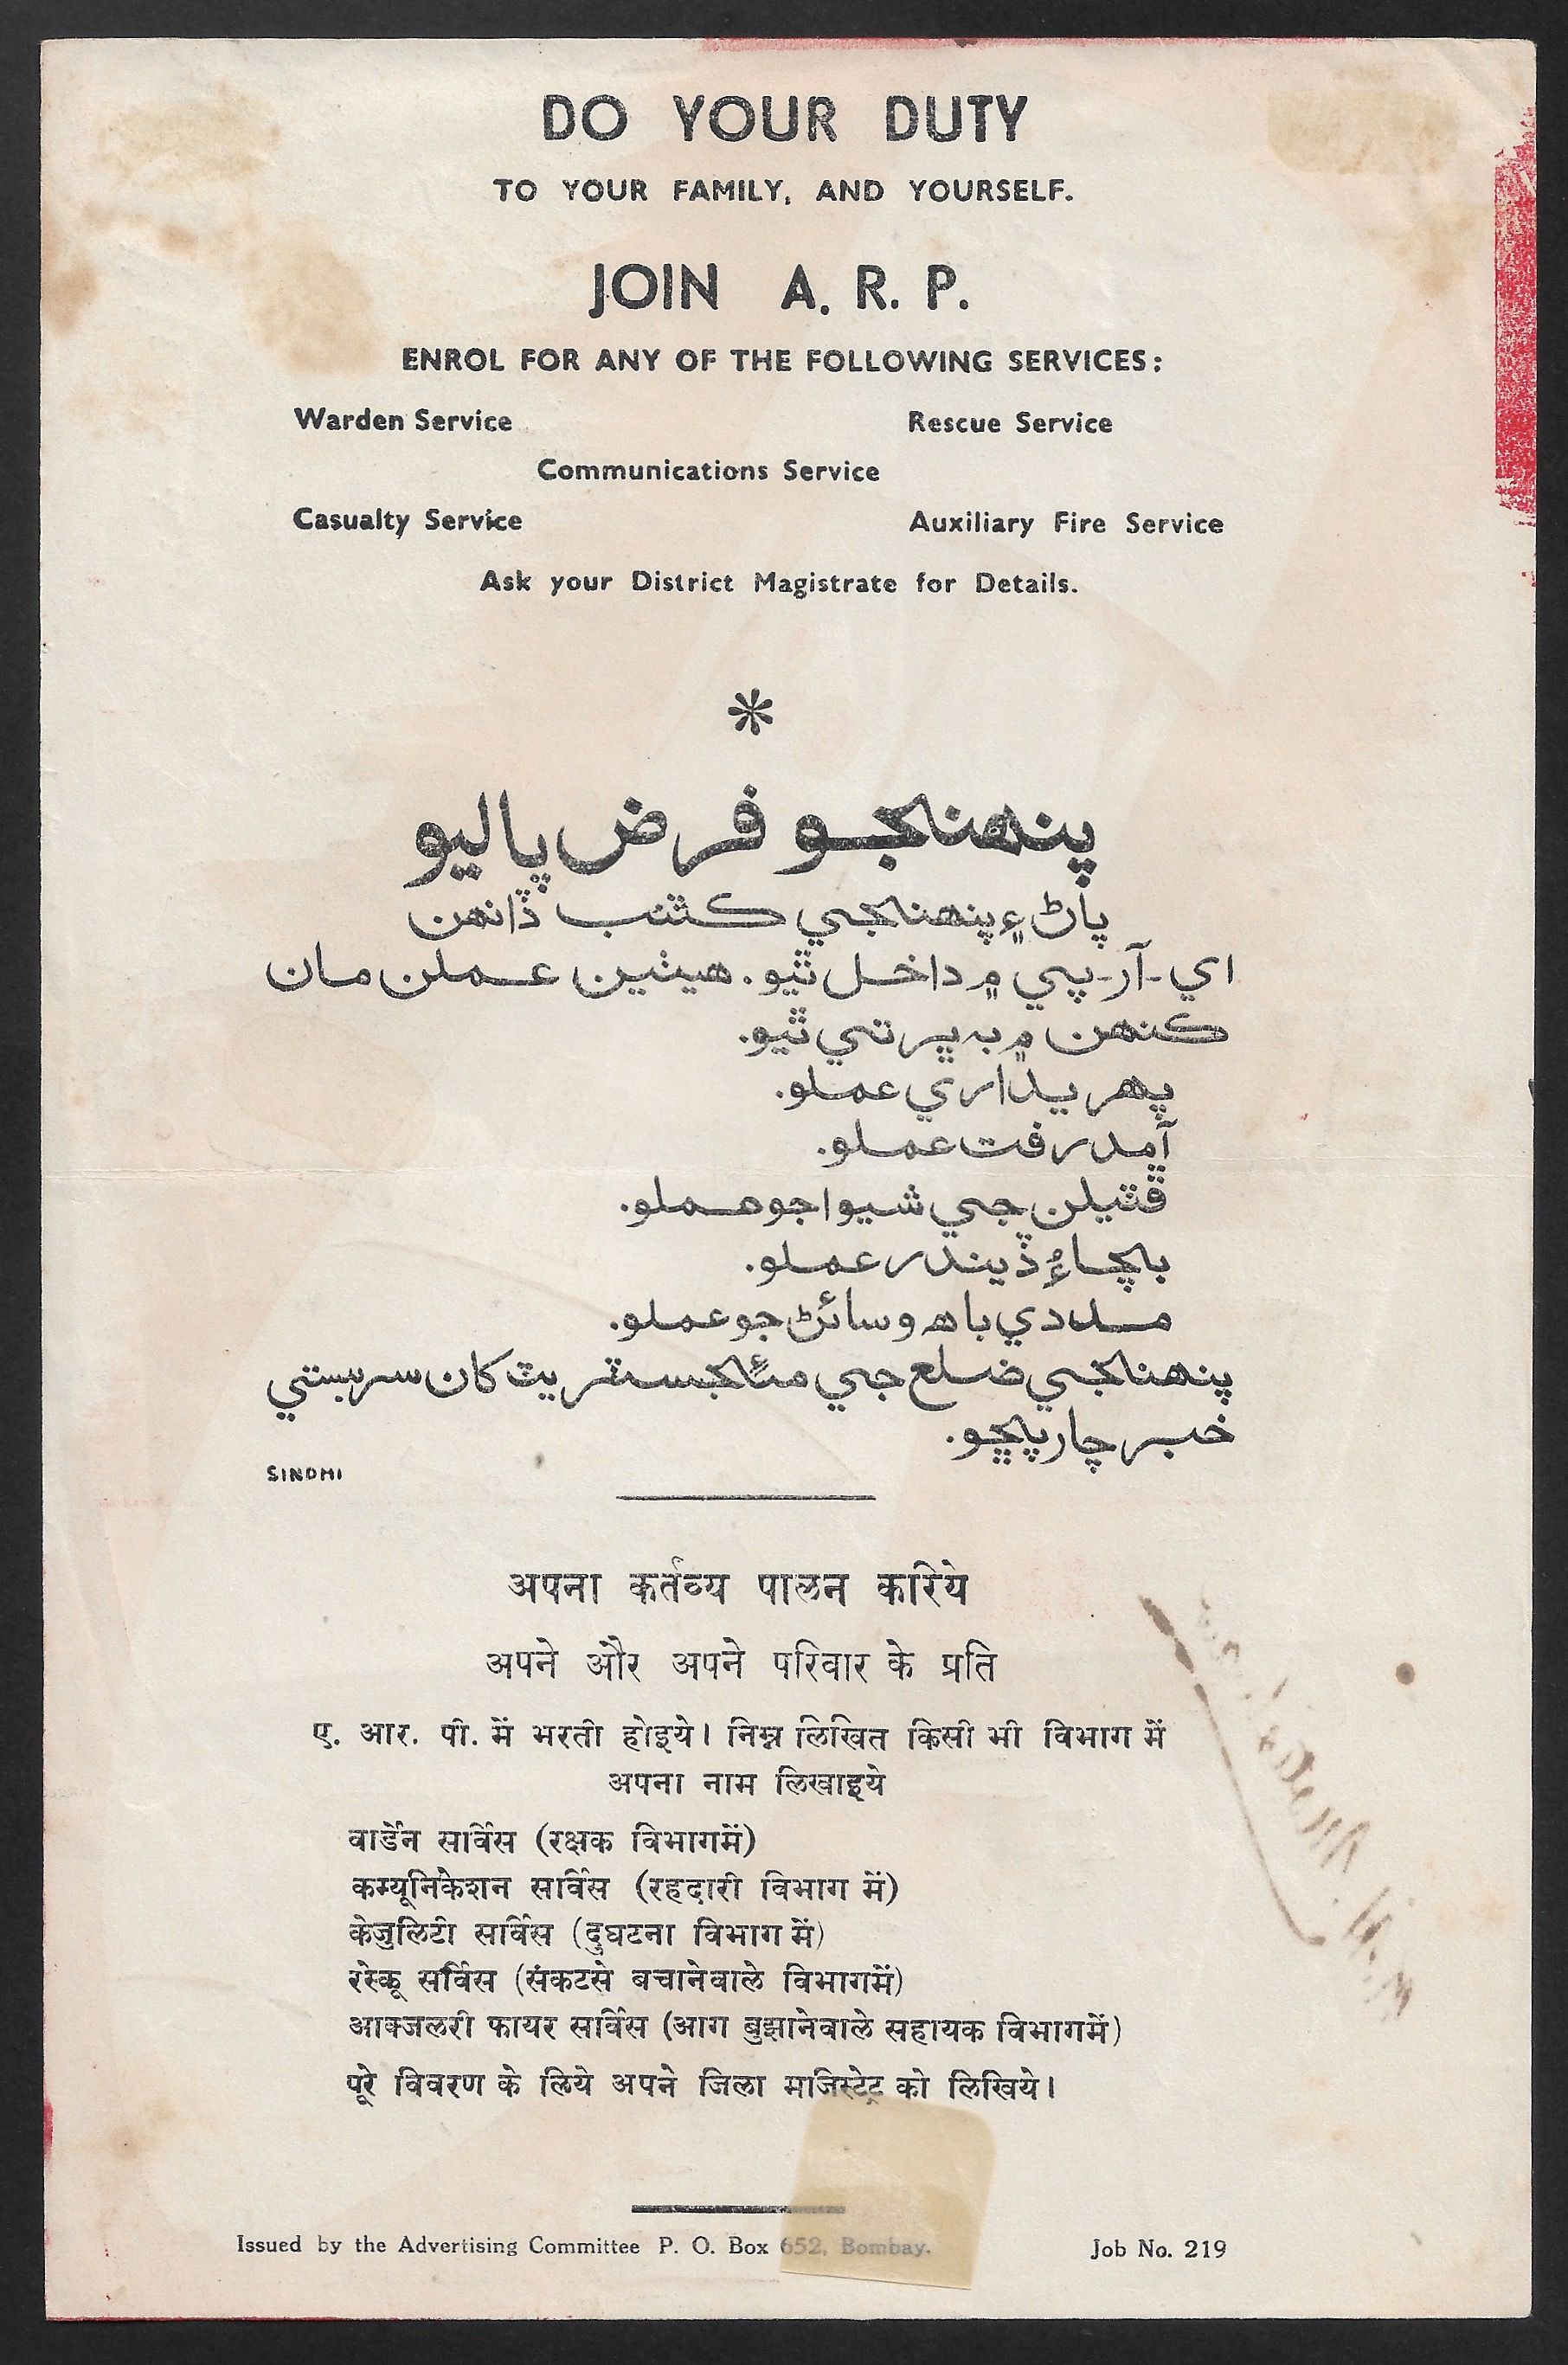 DO YOUR DUTY
TO YOUR FAMILY, AND YOURSELF.
JOIN A. R. P.
ENROL FOR ANY OF THE FOLLOWING SERVICES:
Warden Service Rescue Service
Communications Service
Casualty Service Auxiliary Fire Service
Ask your District Magistrate for Details.
*
پنھنجو فرض پاليو
پاڻ ۽ پنھنجي ڪٽنب ڏانھن
اي-آر-پي ۾ داخل ٿيو. ھيٺين عملن مان
ڪنھن ۾ بہ ڀرتي ٿيو.
پھريداري عملو.
آمدرفت عملو.
ڦٽيلن جي شيوا جو عملو.
بچاءُ ڏيندر عملو.
مددي باھ وسائڻ جو عملو.
پنھنجي ضلع جي مئجسٽريٽ کان سربستي
خبر چار پڇو.
SINDHI
अपना कर्तव्य पालन करिये
अपने और अपने परिवार के प्रति
ए. आर. पी. में भरती होइये। निम्न लिखित किसी भी विभाग में
अपना नाम लिखाइये
वार्डेन सर्विस (रक्षक विभागमें)
कम्यूनिकेशन सर्विस (रहदारी विभाग में)
केजुलिटी सर्विस (दुघटना विभाग में)
रस्केू सर्विस (संकटसे बचानेवाले विभागमें)
आक्जलरी फायर सर्विस (आग बुझानेवाले सहायक विभागमें)
पूरे विवरण के लिये अपने जिला माजिस्टेट्र को लिखिये।
Issued by the Advertising Committee P. O. Box 652, Bombay. Job No. 219